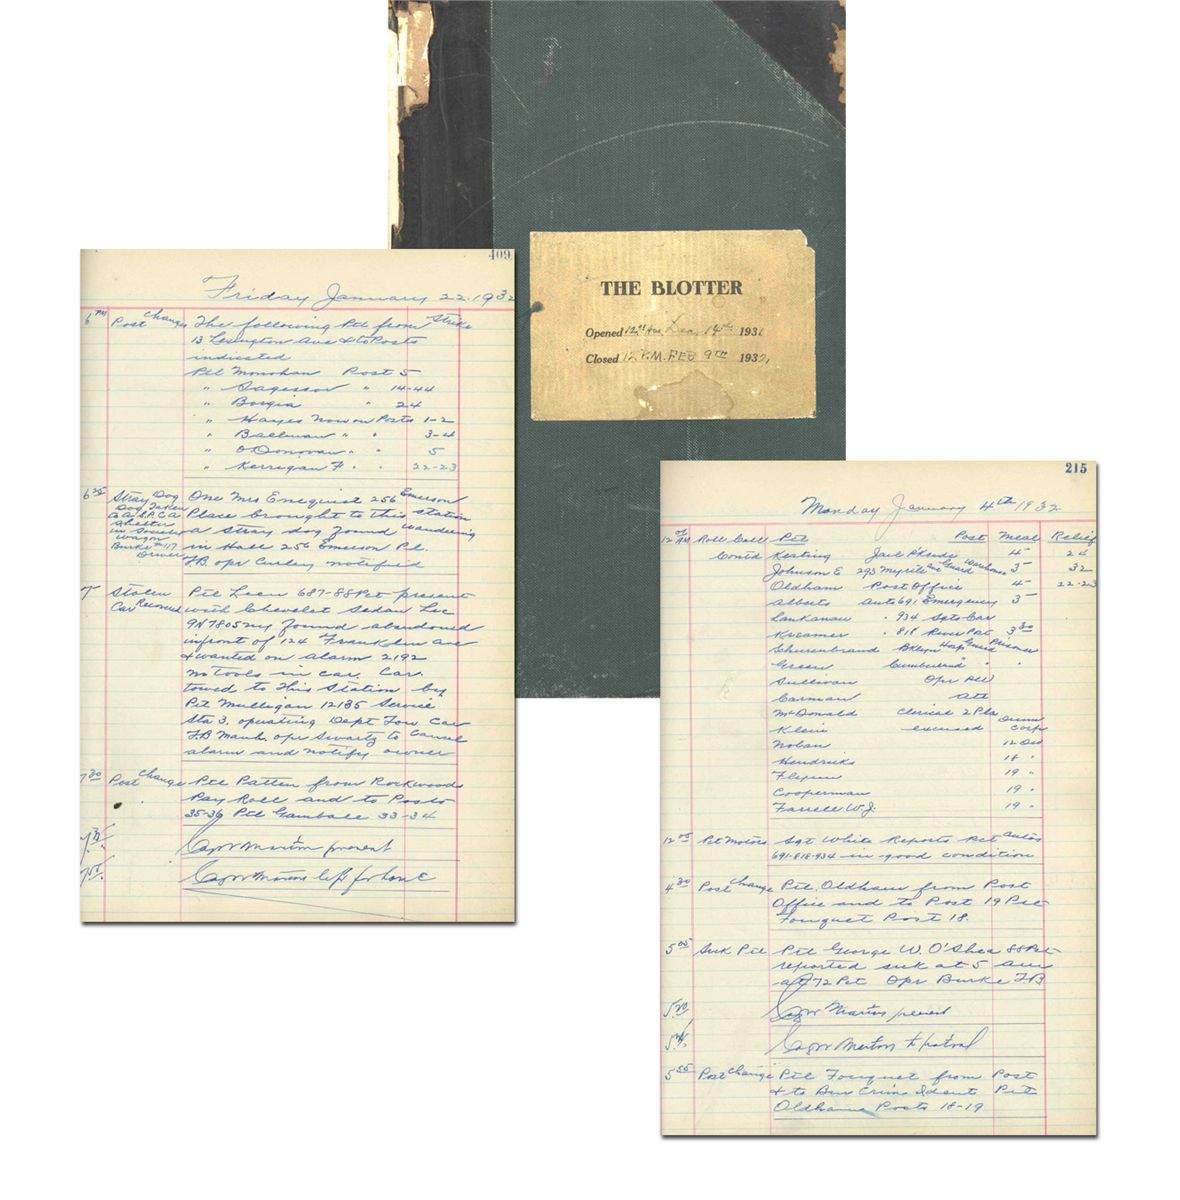 THE BLOTTER
Opened Dec. 14th 1931
Closed 12 P.M. FEB 9TH 1932,
409
Friday January 22. 1932
6 PM Post Change The following Ptl from Strike
13 Lexington Ave & to Posts
indicated
Ptl Monohan Post 5
" " 14-44
" Borgia " 24
" Hayes Now on Posts 1-2
" Ballman " " 3-4
" O'Donovan " " 5
" Kerrigan F " " 22-23
6 25 Stray Dog One Mrs Enequist 256 Emerson
Dog Taken Place brought to this station
to A.S.P.C.A a stray dog found wandering
shelter
in Society in Hall 256 Emerson Pl.
wagon
Burke #117 T.B. opr Curley notified
Driver
7 Stolen Ptl Leen 687-88 Pct present
Car Recovered with Chevelet Sedan Lic
9N7805 found abandoned
infront of 124 Franklin Ave
& wanted on alarm 2192
no tools in car. Car.
towed to this station by
Ptl Mulligan 12135 Service
Sta 3. operating Dept Tow Car
T.B Manh. opr Swartz to Cancel
alarm and notify owner
7 30 Post Change Ptl Patten from Rockwoods
Pay Roll and to Posts
35-36 Ptl Gambale 33-34
present
215
Monday January 4th 1932
12 AM Roll Call Ptl Post Meal Relief
Contd Keating Jail 4 24
Johnson E 293 Myrtle Ave Guard Warehouse 3 32
Oldham Post Office 4 22-23
Alberts Auto 691 Emergency 3
Lankanau " 934 Sgts Car
Kreamer " 818 River Pct 3 30
Schurenbrand Bklyn Hosp Guard Prisoner
Green Cumberland " "
Sullivan Opr PW
Carman Att
McDonald Clerical 2 Pla
Klein excused
Nolan 12
Hendricks 18 "
19 "
Cooperman 19 "
Farrell W.J. 19 "
12 05 Pct Motors Sgt White Reports Pct autos
691-818-934 in good condition
4 30 Post Change Ptl. Oldham from Post
Office and to Post 19 Ptl
Fouquet Post 18.
5 05 Sick Ptl Ptl George W. O'Shea 88 Pct
reported sick at 5 am
at 72 Pct. Opr Burke T.B
5.20 present
to patrol
5 55 Post Change Ptl Fouquet from Post
& to Bur Crim Ident Ptl
Oldham Posts 18-19